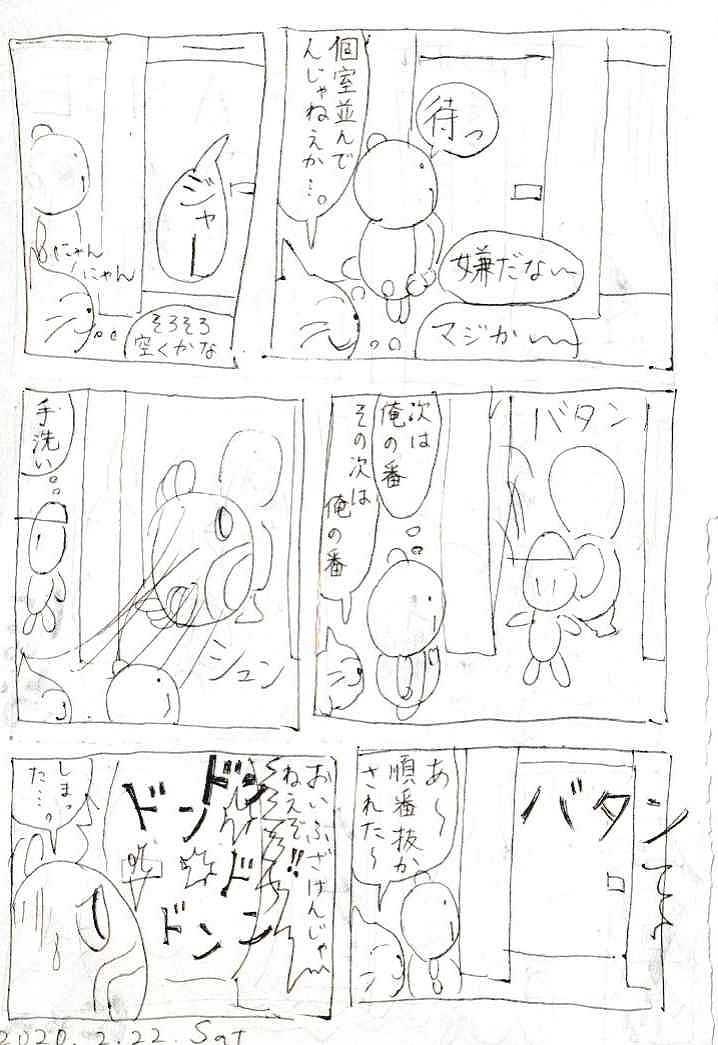 待っ
個室並んで
んじゃねえか…。
嫌だな〜
マジか〜
ジャー
にゃん
にゃん
そろそろ
空くかな
バタン
次は
俺の番
その次は
俺の番
シュン
手洗い
バタン
あ〜
順番抜か
された〜
おいふざけんじゃ
ねえぞ!!
ドンドン
ドンドン
しまっ
た…。
2020.2.22.Sat